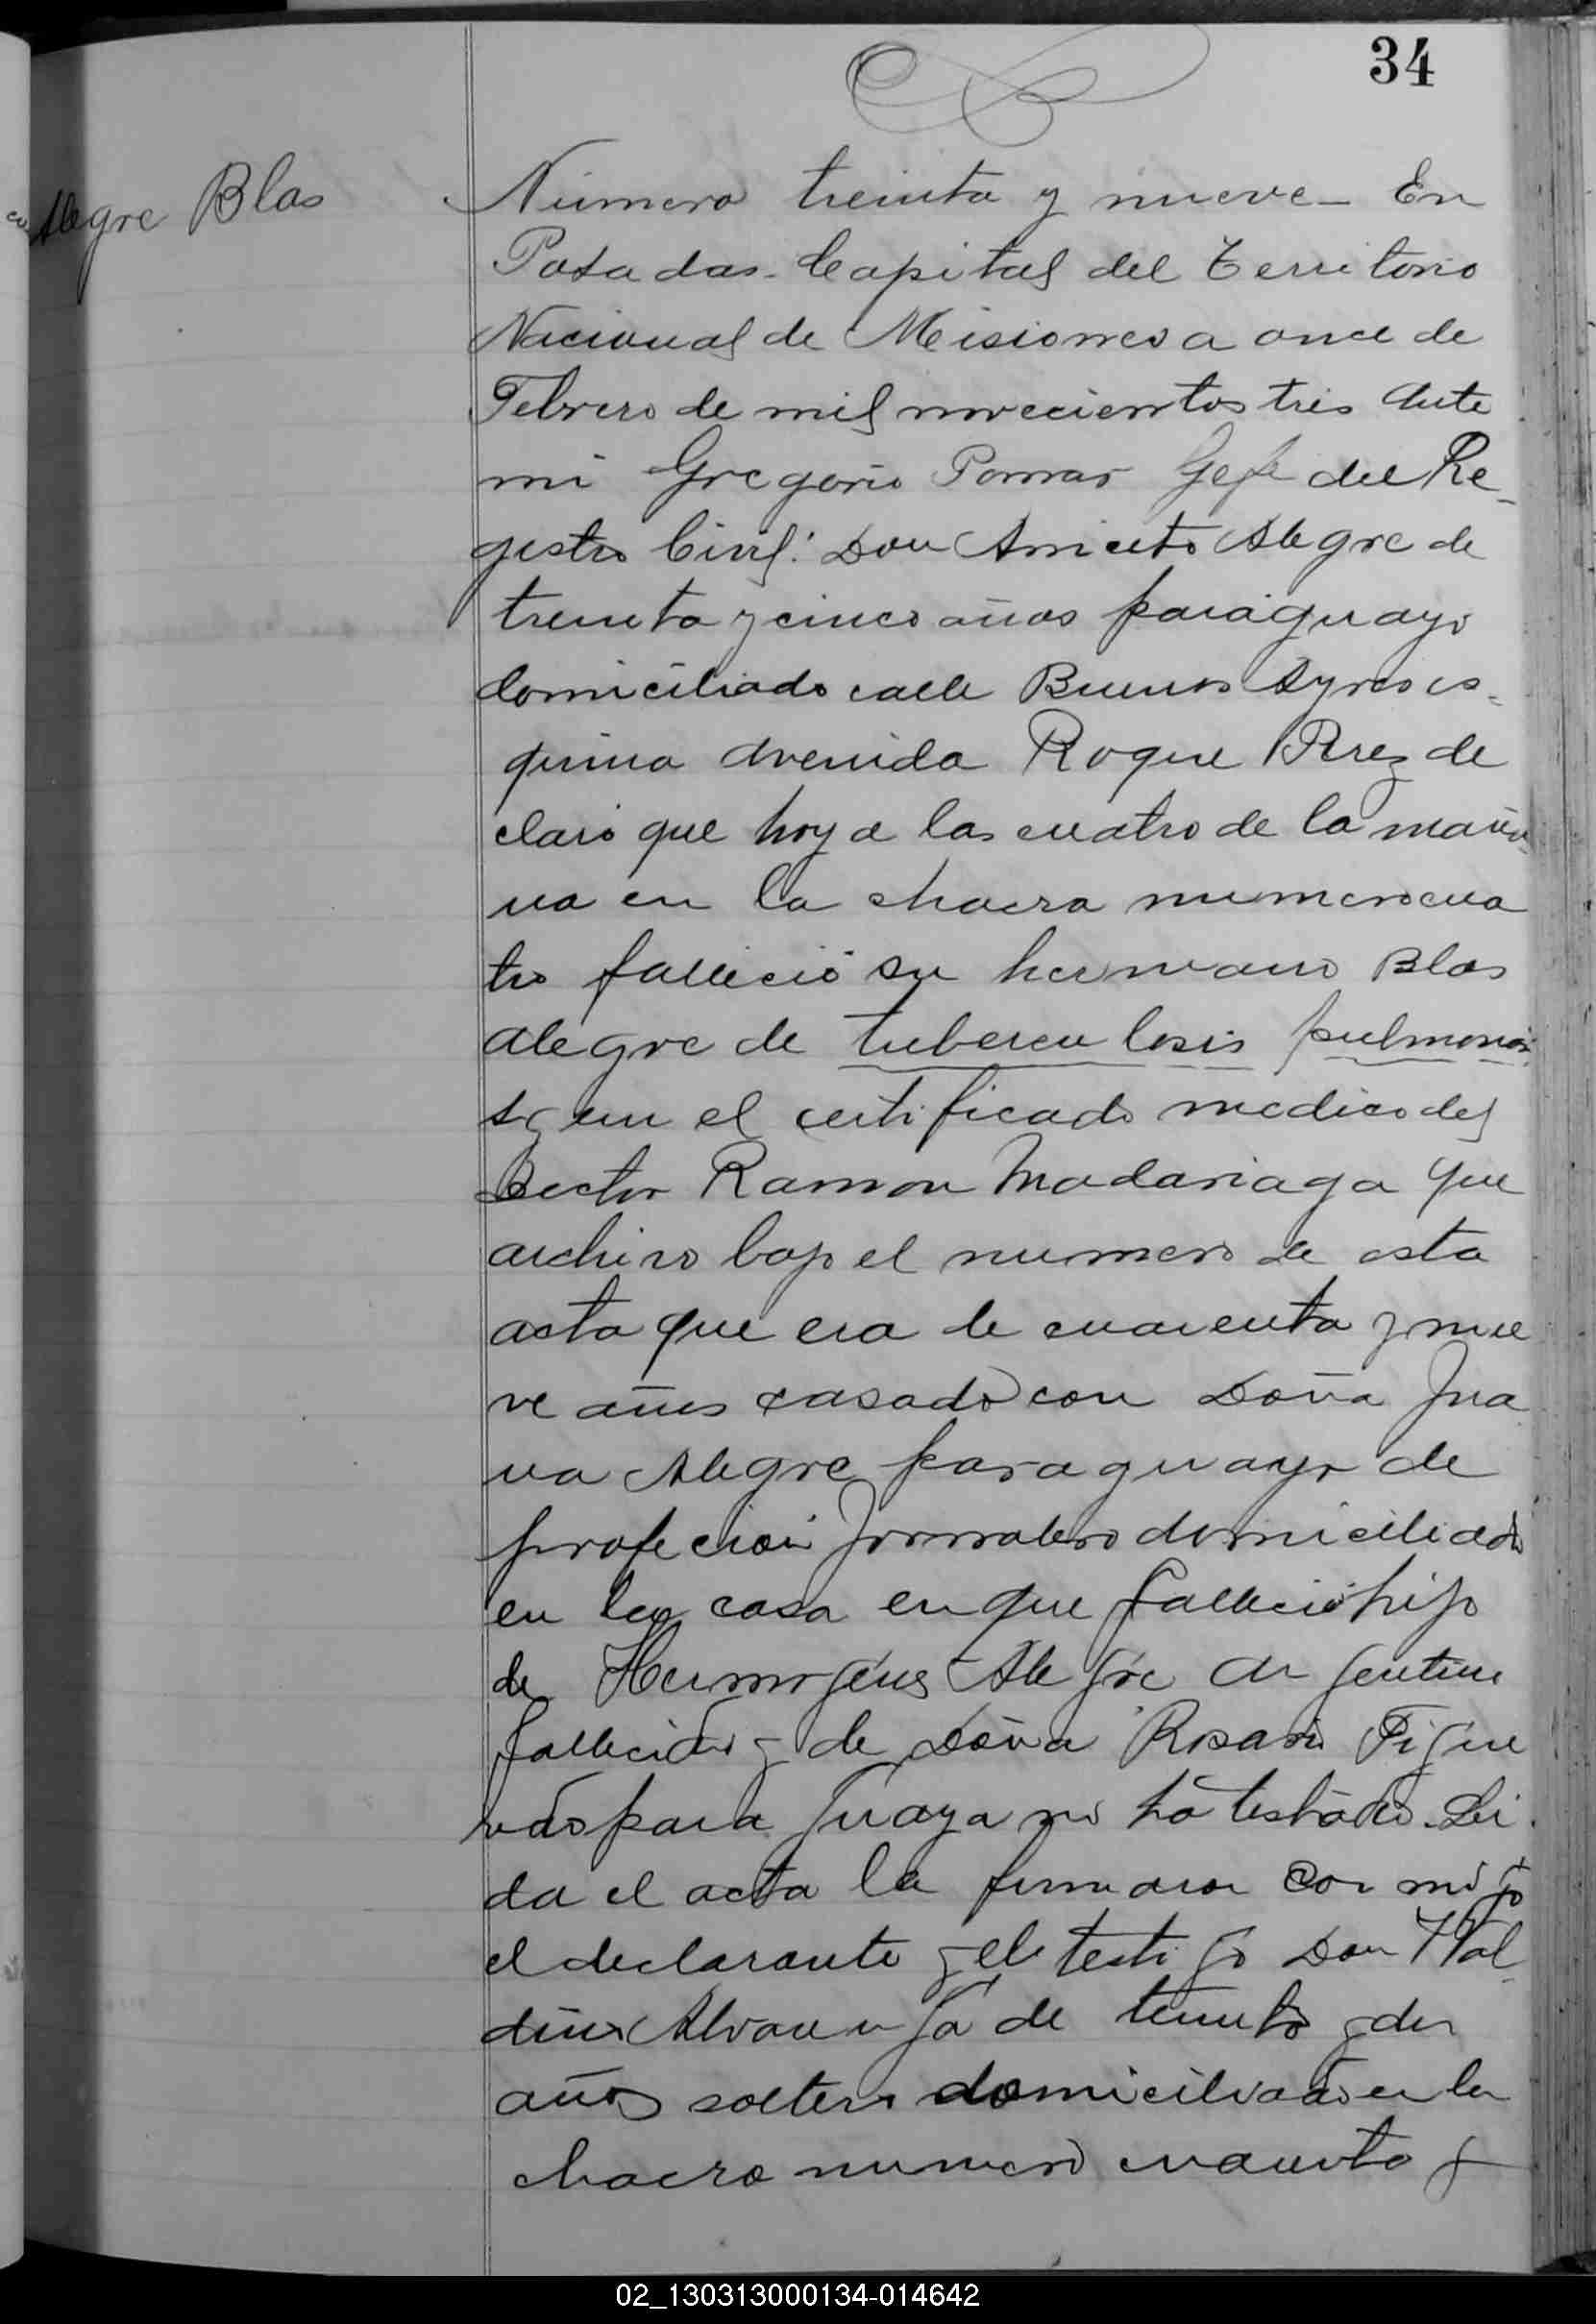 34
Alegre Blas
Número treinta y nueve - En
Posadas Capital del Territorio
Nacional de Misiones a once de
Febrero de mil novecientos tres Ante
mi Gregorio Pomar Gefe del Re-
gistro Civil: Don Aniceto Alegre de
treinta y cinco años paraguayo
domiciliado calle Buenos Ayres es-
quina Avenida Roque Perez de
claró que hoy a las cuatro de la maña-
na en la chacra numero cua
tro falleció su hermano Blas
Alegre de tuberculosis pulmonar
segun el certificado medico del
Doctor Ramon Madariaga que
archivo bajo el numero de esta
acta que era de cuarenta y nue
ve años casado con Doña Jua
na Alegre paraguayo de
profecion Jornalero domiciliado
en la casa en que falleció hijo
de Hermogenes Alegre Argentino
fallecido y de Doña Rosario Figue
redo paraguaya no ha testado. Lei
da el acta la firmaron conmigo
el declarante y el testigo Don
de treinta y dos
años soltero domiciliado en la
chacra numero cuarenta y
02_130313000134-014642